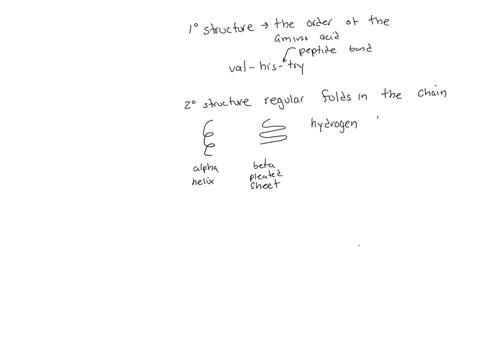 1° structure → the order of the
amino acid
peptide bond
val - his - try
2° structure regular folds in the chain
hydrogen
alpha
helix
beta
pleated
sheet